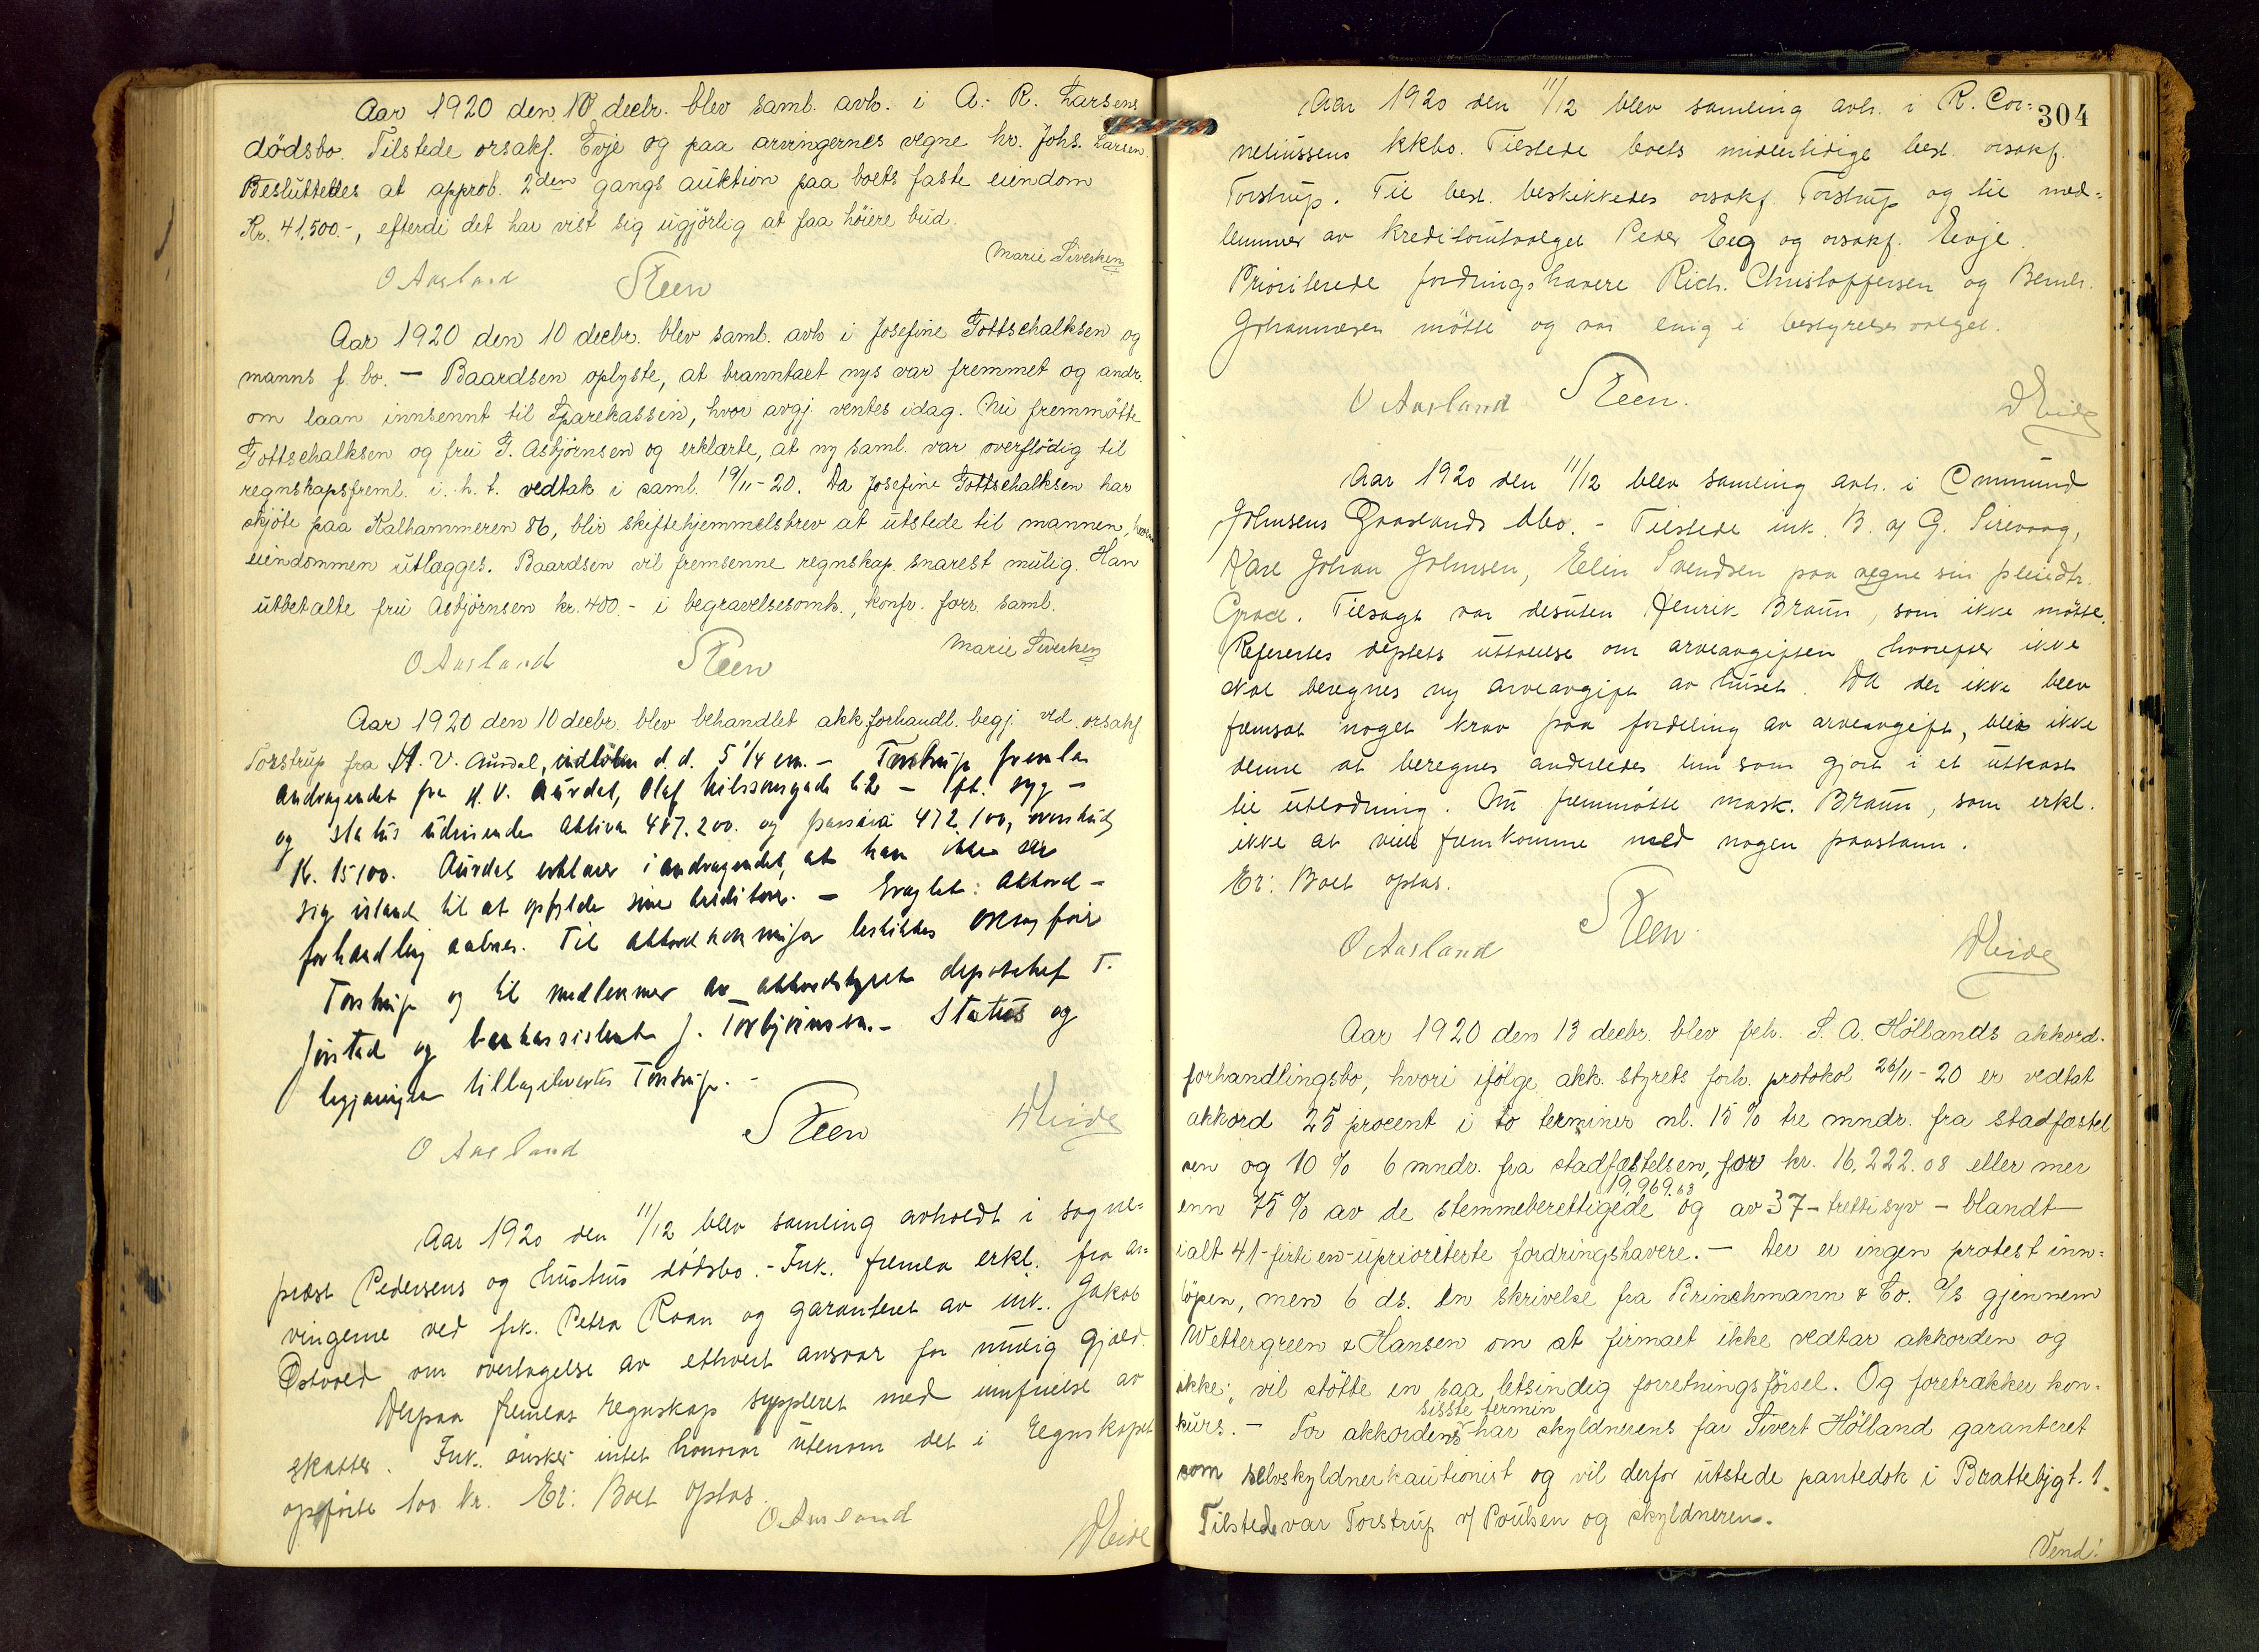 Aar 1920 den 10 decbr. blev saml. avh. i A. R. Larsens
dödsbo. Tilstede orsakf. Evje og paa arvingernes vegne hr. Johs. Larsen.
Besluttedes at approb. 2den gangs auktion paa boets faste eiendom
Kr. 41,500.-, efterdi det har vist sig ugjörlig at faa höiere bud.
Marie Siverken
O Aasland Steen
Aar 1920 den 10 decbr. blev saml. avh i Josefine Gottschalksen og
manns f. bo. — Baardsen oplyste, at branntaet nys var fremmet og andr.
om laan innsennt til Sparekassein, hvor avgj. ventes idag. Nu fremmötte
Gottschalksen og frü G. Asbjörnsen og erklærte, at ny saml. var overflödig til
regnskapsfreml. i. h. t. vedtak i saml. 19/11-20. Da Josefine Gottschalksen har
skjöte paa Kalhammeren 86, blir skiftehjemmelsbrev at utstede til mannen,
eiendommen utlægges. Baardsen vil fremsenne regnskap snarest mulig. Han
utbetalte frü Asbjörnsen kr. 400.- i begravelsesomk., konfr. forr. saml.
Marie Siverken
O Aasland Steen
Aar 1920 den 10 decbr. blev behandlet akk.forhandl. begj. ved orsakf
Torstrup fra H. V. Aurdal, indlöben d. d. 5 1/4 em. — Torstrup fremla
andragendet fra H. V. Aurdal, Olaf Nilssensgade
og status udvisende Aktiva 487.200. og passiva 472.100, overskud
Kr. 15100. Aurdal erklærer i andragendet, at han ikke ser
sig istand til at opfylde sine kreditorer. — Eragtet: Akkord-
forhandling aabnes. Til akkordkommissær beskikkes overretssakfører
Torstrup og til medlemmer av akkordstyret deposchef T.
Jöstad og bankassistent J. Torbjörnsen. — Status og
begjæringen tilbageleveres Torstrup. -
O Aasland Steen WEide
Aar 1920 den 11/12 blev samling avholdt i sogne=
præst Pedersens og hustrus dödsbo. - Ink. fremla erkl. fra ar=
vingerne ved frk. Petra Raan og garanteret av ink. Jakob
Östvold om overtagelse av ethvert ansvar for mulig gjæld.
Derpaa fremlas regnskap suppleret med innfrielse av
skatter. Ink. önsker intet honorar utenom det i regnskapet
opförte 100 kr. Er: Boet optas.
O Aasland WEide
304
Aar 1920 den 11/12 blev samling avh. i R. Cor=
neliussens kkbo. Tilstede boets midlertidige best. orsakf.
Torstrup. Til best. beskikkedes orsakf. Torstrup og til med=
lemmer av kreditorutvalget Peder Eeg og orsakf. Evje.
Prioriterede fordringshavere Rich. Christoffersen og Bernh.
Johannesen mötte og var enig i bestyrelsesvalget.
O Aasland Steen. WEide
Aar 1920 den 11/12 blev samling avh. i Ommund
Johnsens Gaaslands dbo. - Tilstede ink. B. af G. Sirevaag,
Karl Johan Johnsen, Elin Svendsen paa vegne sin pleiedtr.
Grace. Tilsagt var desuten Henrik Braun, som ikke mötte.
Refereres deptets uttalelse om arveavgiften hvorefter ikke
skal beregnes ny arveavgift av huset. Da der ikke blev
fremsat noget krav paa fordeling av arveavgift, blir ikke
denne at beregnes anderledes enn som gjort i et utkast
til utlodning. Nu fremmötte mask. Braun, som erkl.
ikke at ville fremkomme med nogen paastann.
Er: Boet optas.
O Aasland Steen WEide
Aar 1920 den 13 decbr. blev beh. S. A. Höllands akkord-
forhandlingsbo, hvori ifölge akk. styrets forh. protokol 26/11-20 er vedtat
akkord 25 procent i to terminer nl. 15 % tre mndr. fra stadfæstel
sen og 10 % 6 mndr. fra stadfæstelsen, for kr. 16,222.08 eller mer
enn 75 % av de stemmeberettigede 19,969.63 og av 37 - trettisyv - blandt
ialt 41-firtien-uprioriterte fordringshavere. — Der er ingen protest inn=
löpen, men 6 ds. en skrivelse fra Brinchmann & Co. A/S gjennem
Wettergreen & Hansen om at firmaet ikke vedtar akkorden og
ikke: "vil stötte en saa letsindig forretningsförsel. Og foretrækker kon-
kurs. — For akkordens sisste termin har skyldnerens far Sivert Hölland garanteret
som selvskyldnerkautionist og vil derfor utstede pantedok i Brattebjgt. 1.
Tilstede var Torstrup v/ Poulsen og skyldneren.
Vend!